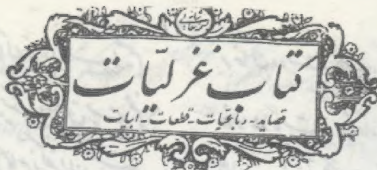 کتاب غزلیّات
قصاید - رباعیّات - قطعات - ابیات